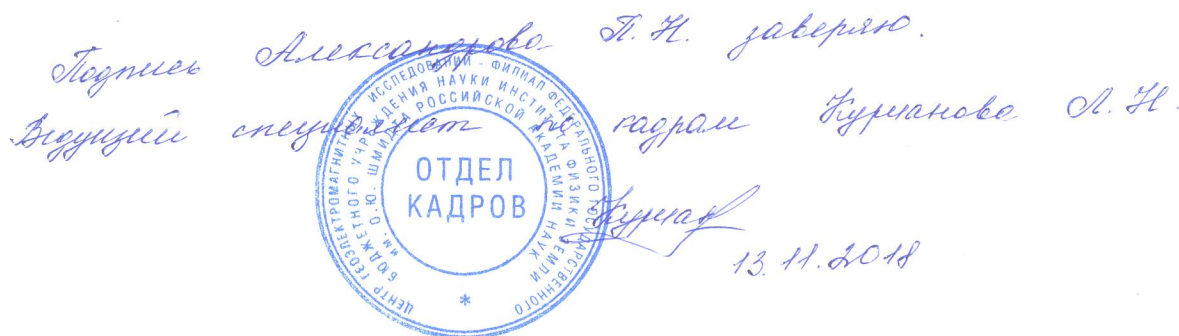 Подпись Александрова П.Н. заверяю.
Ведущий специалист по кадрам Курианова Л.Н.
ЦЕНТР ГЕОЭЛЕКТРОМАГНИТНЫХ ИССЛЕДОВАНИЙ - ФИЛИАЛ ФЕДЕРАЛЬНОГО ГОСУДАРСТВЕННОГО
БЮДЖЕТНОГО УЧРЕЖДЕНИЯ НАУКИ ИНСТИТУТА ФИЗИКИ ЗЕМЛИ
ИМ. О.Ю. ШМИДТА РОССИЙСКОЙ АКАДЕМИИ НАУК
ОТДЕЛ
КАДРОВ
*
13.11.2018